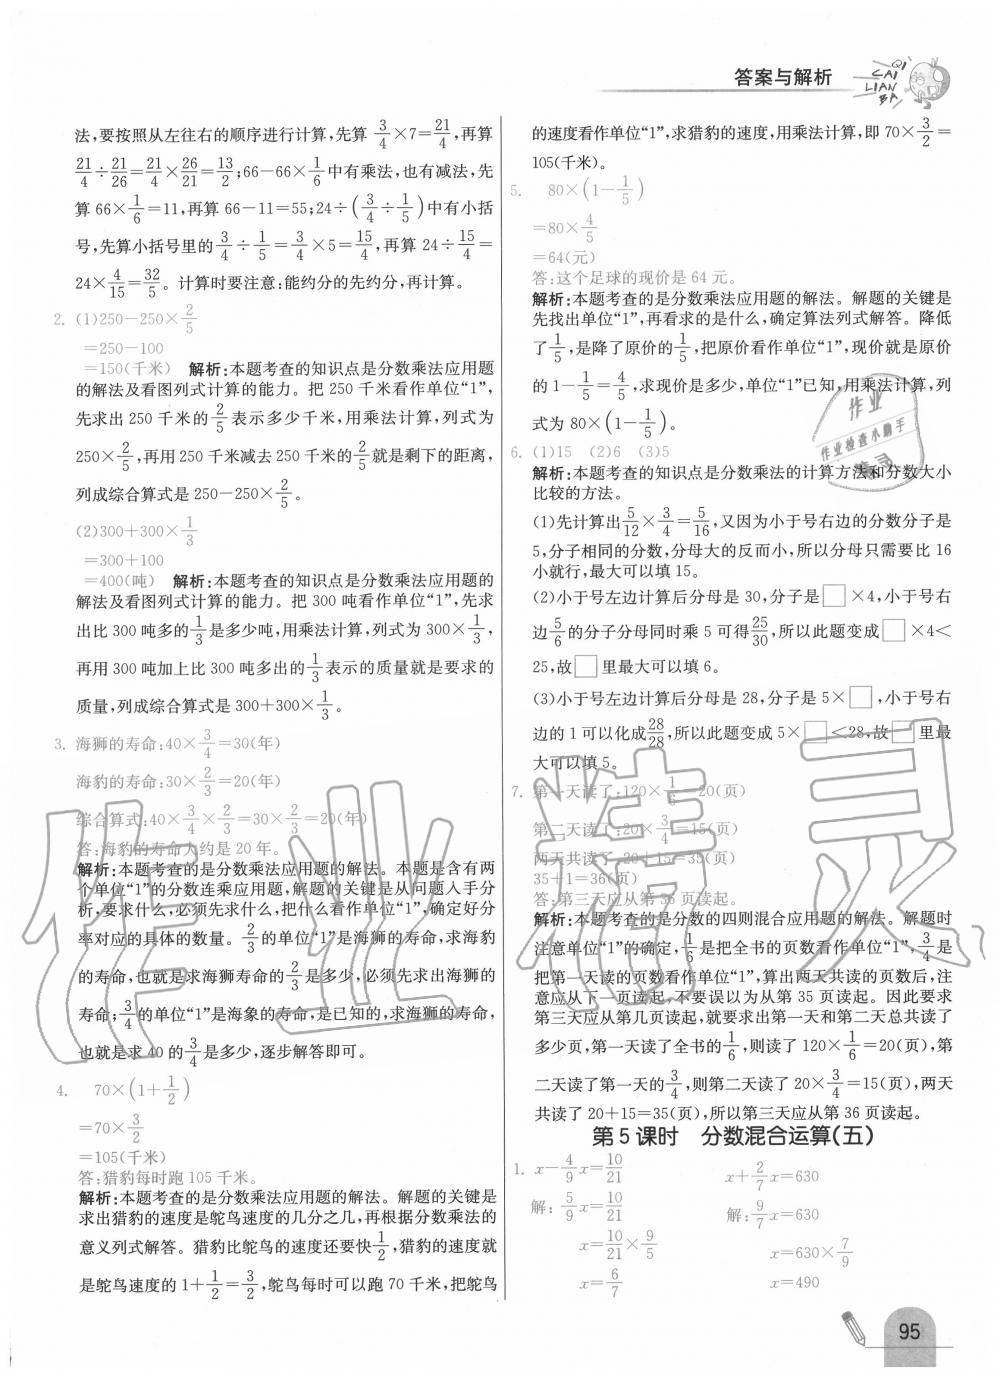 答案与解析
QI
CAI
LIAN
BA
法,要按照从左往右的顺序进行计算,先算 3/4×7=21/4,再算
21/4÷21/26=21/4×26/21=13/2;66-66×1/6中有乘法,也有减法,先
算66×1/6=11,再算66-11=55;24÷(3/4÷1/5)中有小括
号,先算小括号里的3/4÷1/5=3/4×5=15/4,再算24÷15/4=
24×4/15=32/5。计算时要注意:能约分的先约分,再计算。
2. (1)250-250×2/5
=250-100
=150(千米) 解析:本题考查的知识点是分数乘法应用题
的解法及看图列式计算的能力。把250千米看作单位“1”,
先求出250千米的2/5表示多少千米,用乘法计算,列式为
250×2/5,再用250千米减去250千米的2/5就是剩下的距离,
列成综合算式是250-250×2/5。
(2)300+300×1/3
=300+100
=400(吨) 解析:本题考查的知识点是分数乘法应用题的
解法及看图列式计算的能力。把300吨看作单位“1”,先求
出比300吨多的1/3是多少吨,用乘法计算,列式为300×1/3,
再用300吨加上比300吨多出的1/3表示的质量就是要求的
质量,列成综合算式是300+300×1/3。
3. 海狮的寿命:40×3/4=30(年)
海豹的寿命:30×2/3=20(年)
综合算式:40×3/4×2/3=30×2/3=20(年)
答:海豹的寿命大约是20年。
解析:本题考查的是分数乘法应用题的解法。本题是含有两
个单位“1”的分数连乘应用题,解题的关键是从问题入手分
析,要求什么,必须先求什么,把什么看作单位“1”,确定好分
率对应的具体的数量。2/3的单位“1”是海狮的寿命,求海豹
的寿命,也就是求海狮寿命的2/3是多少,必须先求出海狮的
寿命;3/4的单位“1”是海象的寿命,是已知的,求海狮的寿命,
也就是求40的3/4是多少,逐步解答即可。
4. 70×(1+1/2)
=70×3/2
=105(千米)
答:猎豹每时跑105千米。
解析:本题考查的是分数乘法应用题的解法。解题的关键是
求出猎豹的速度是鸵鸟速度的几分之几,再根据分数乘法的
意义列式解答。猎豹比鸵鸟的速度还要快1/2,猎豹的速度就
是鸵鸟速度的1+1/2=3/2,鸵鸟每时可以跑70千米,把鸵鸟
的速度看作单位“1”,求猎豹的速度,用乘法计算,即70×3/2=
105(千米)。
5. 80×(1-1/5)
=80×4/5
=64(元)
答:这个足球的现价是64元。
解析:本题考查的是分数乘法应用题的解法。解题的关键是
先找出单位“1”,再看求的是什么,确定算法列式解答。降低
了1/5,是降了原价的1/5,把原价看作单位“1”,现价就是原价
的1-1/5=4/5,求现价是多少,单位“1”已知,用乘法计算,列
式为80×(1-1/5)。
6. (1)15 (2)6 (3)5
解析:本题考查的知识点是分数乘法的计算方法和分数大小
比较的方法。
(1)先计算出5/12×3/4=5/16,又因为小于号右边的分数分子是
5,分子相同的分数,分母大的反而小,所以分母只需要比16
小就行,最大可以填15。
(2)小于号左边计算后分母是30,分子是□×4,小于号右
边5/6的分子分母同时乘5可得25/30,所以此题变成□×4<
25,故□里最大可以填6。
(3)小于号左边计算后分母是28,分子是5×□,小于号右
边的1可以化成28/28,所以此题变成5×□<28,故□里最
大可以填5。
7. 第一天读了:120×1/6=20(页)
第二天读了:20×3/4=15(页)
两天共读了:20+15=35(页)
35+1=36(页)
答:第三天应从第36页读起。
解析:本题考查的是分数的四则混合应用题的解法。解题时
注意单位“1”的确定,1/6是把全书的页数看作单位“1”,3/4是
把第一天读的页数看作单位“1”,算出两天共读的页数后,注
意应从下一页读起,不要误以为从第35页读起。因此要求
第三天应从第几页读起,就要求出第一天和第二天总共读了
多少页,第一天读了全书的1/6,则读了120×1/6=20(页),第
二天读了第一天的3/4,则第二天读了20×3/4=15(页),两天
共读了20+15=35(页),所以第三天应从第36页读起。
第5课时 分数混合运算(五)
1. x-4/9x=10/21 x+2/7x=630
解: 5/9x=10/21 解: 9/7x=630
x=10/21×9/5 x=630×7/9
x=6/7 x=490
95
作业
作业检查小助手
作业精灵